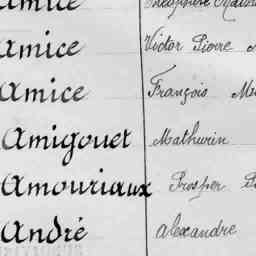 Amice Théophile
Amice Victor Pierre
Amice François
Amigouet Mathurin
Amouriaux Prosper
André Alexandre